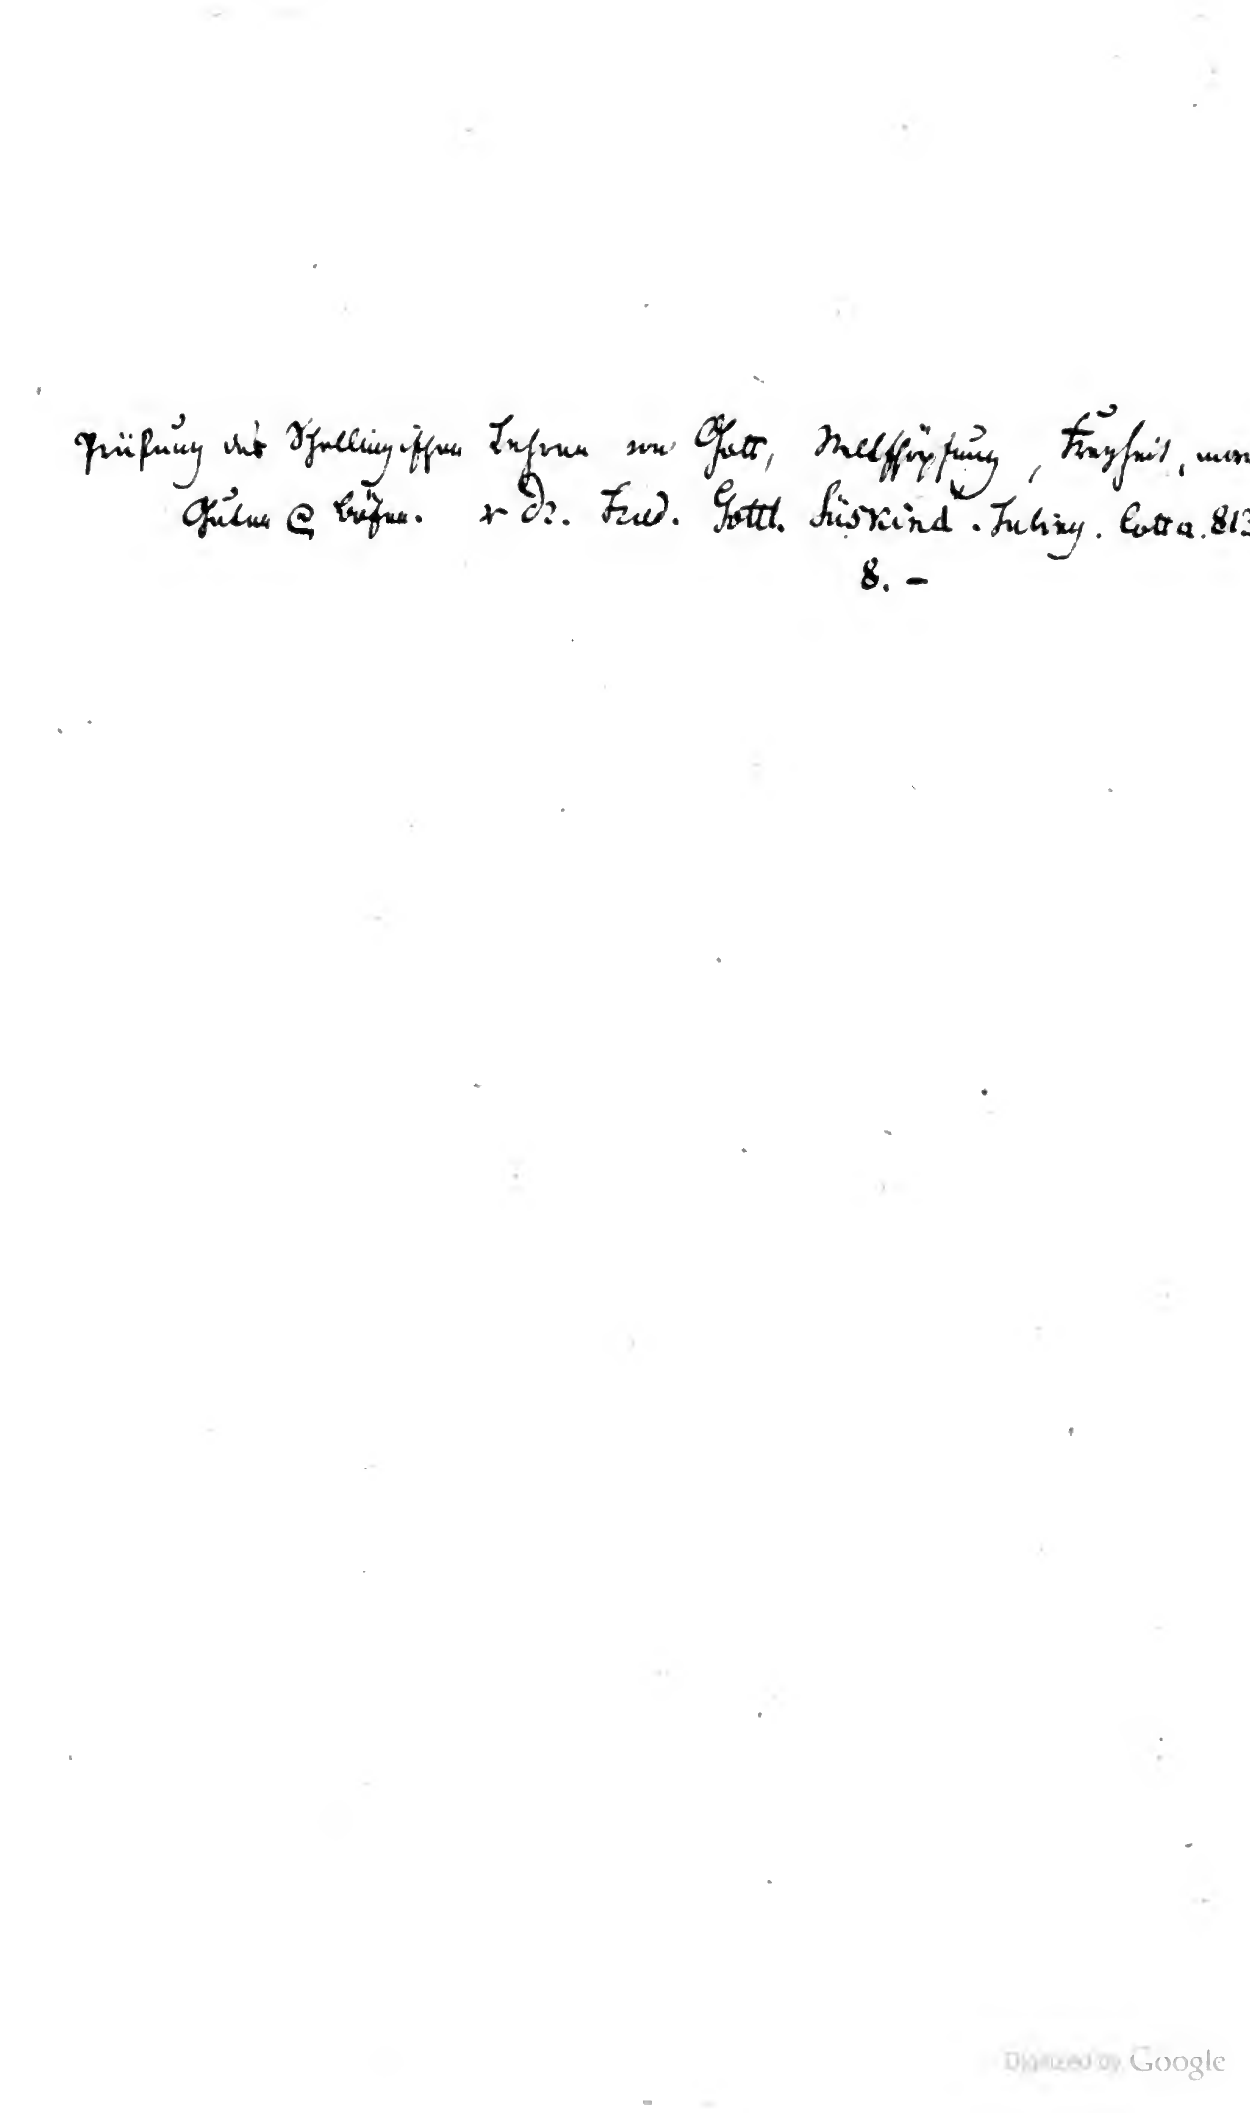 Prüfung der Schellingischen Lehren von Gott, Weltschöpfung, Freyheit, mor
Guten & Bösen. v Dr. Fried. Gottl. Süskind. Tubing. Cotta. 813
8. –
Digitized by Google